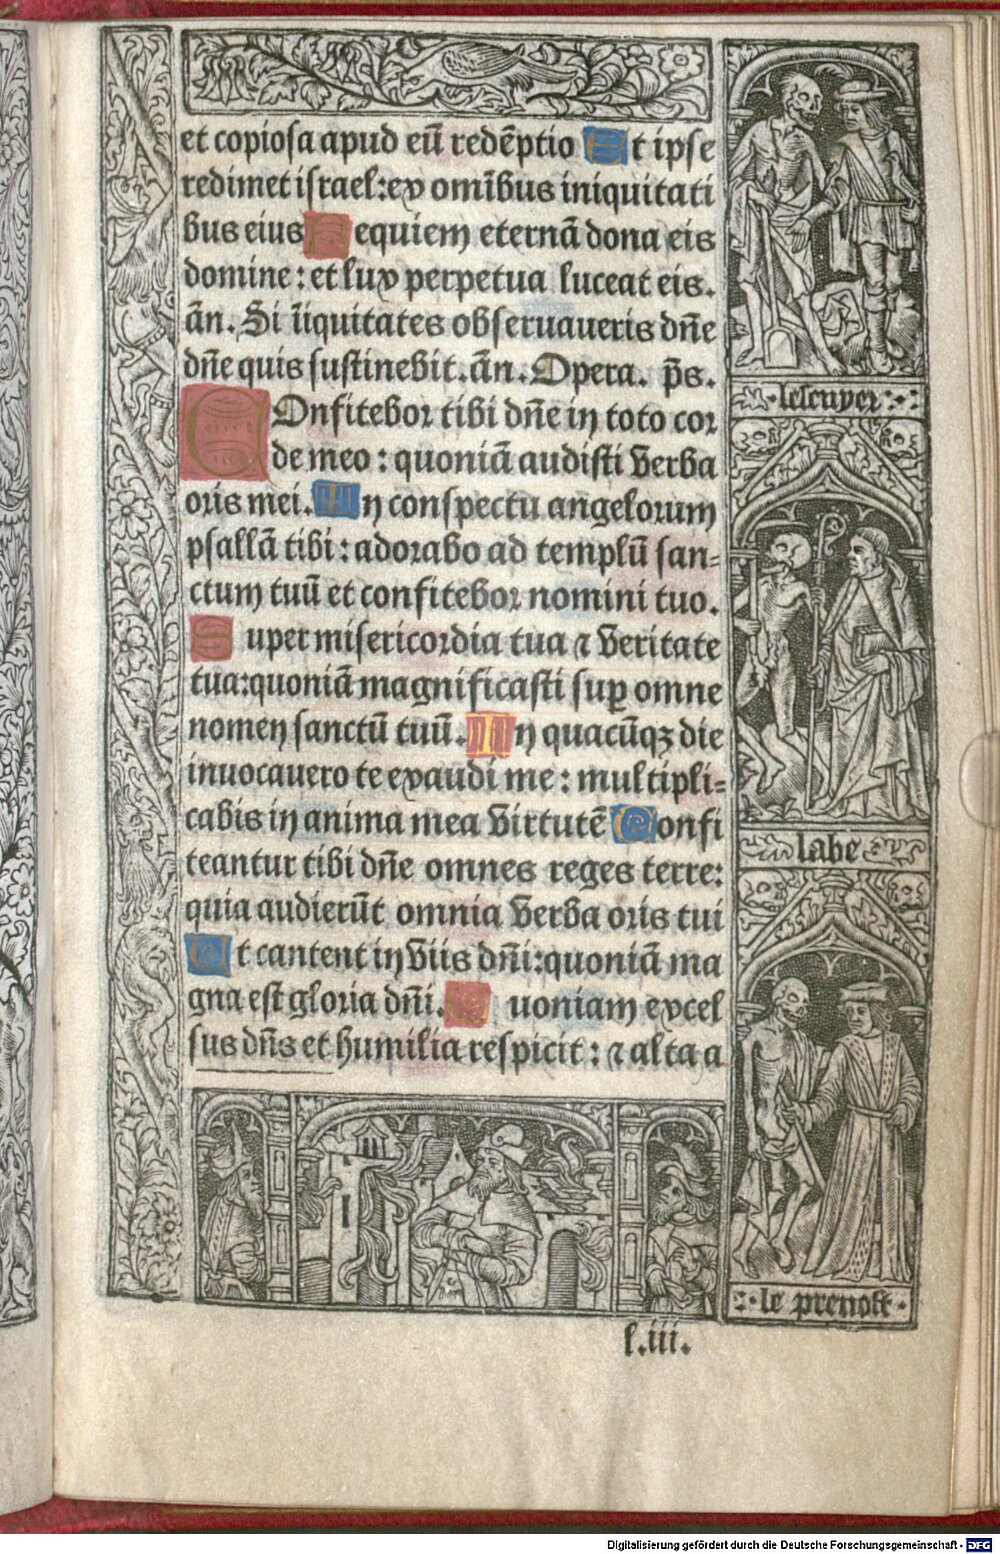 et copiosa apud eū redēptio Et ipse
redimet israel: ex omībus iniquitati
bus eius Requiem eternā dona eis
domine: et lux perpetua luceat eis.
ān. Si īiquitates obseruaueris dn̄e
dn̄e quis sustinebit. ān. Opera. p̄s.
COnfitebor tibi dn̄e in toto cor
de meo: quoniā audisti verba
oris mei. In conspectu angelorum
psallā tibi: adorabo ad templū san-
ctum tuū et confitebor nomini tuo.
Super misericordia tua ⁊ veritate
tua: quoniā magnificasti suꝑ omne
nomen sanctū tuū. In quacūqꝫ die
inuocauero te exaudi me: multipli-
cabis in anima mea virtutē Confi
teantur tibi dn̄e omnes reges terre:
quia audierūt omnia verba oris tui
Et cantent in viis dn̄i: quoniā ma
gna est gloria dn̄i. Quoniam excel
sus dn̄s et humilia respicit: ⁊ alta a
l.iii.
lescuyer
labe
le prevost
Digitalisierung gefördert durch die Deutsche Forschungsgemeinschaft - DFG